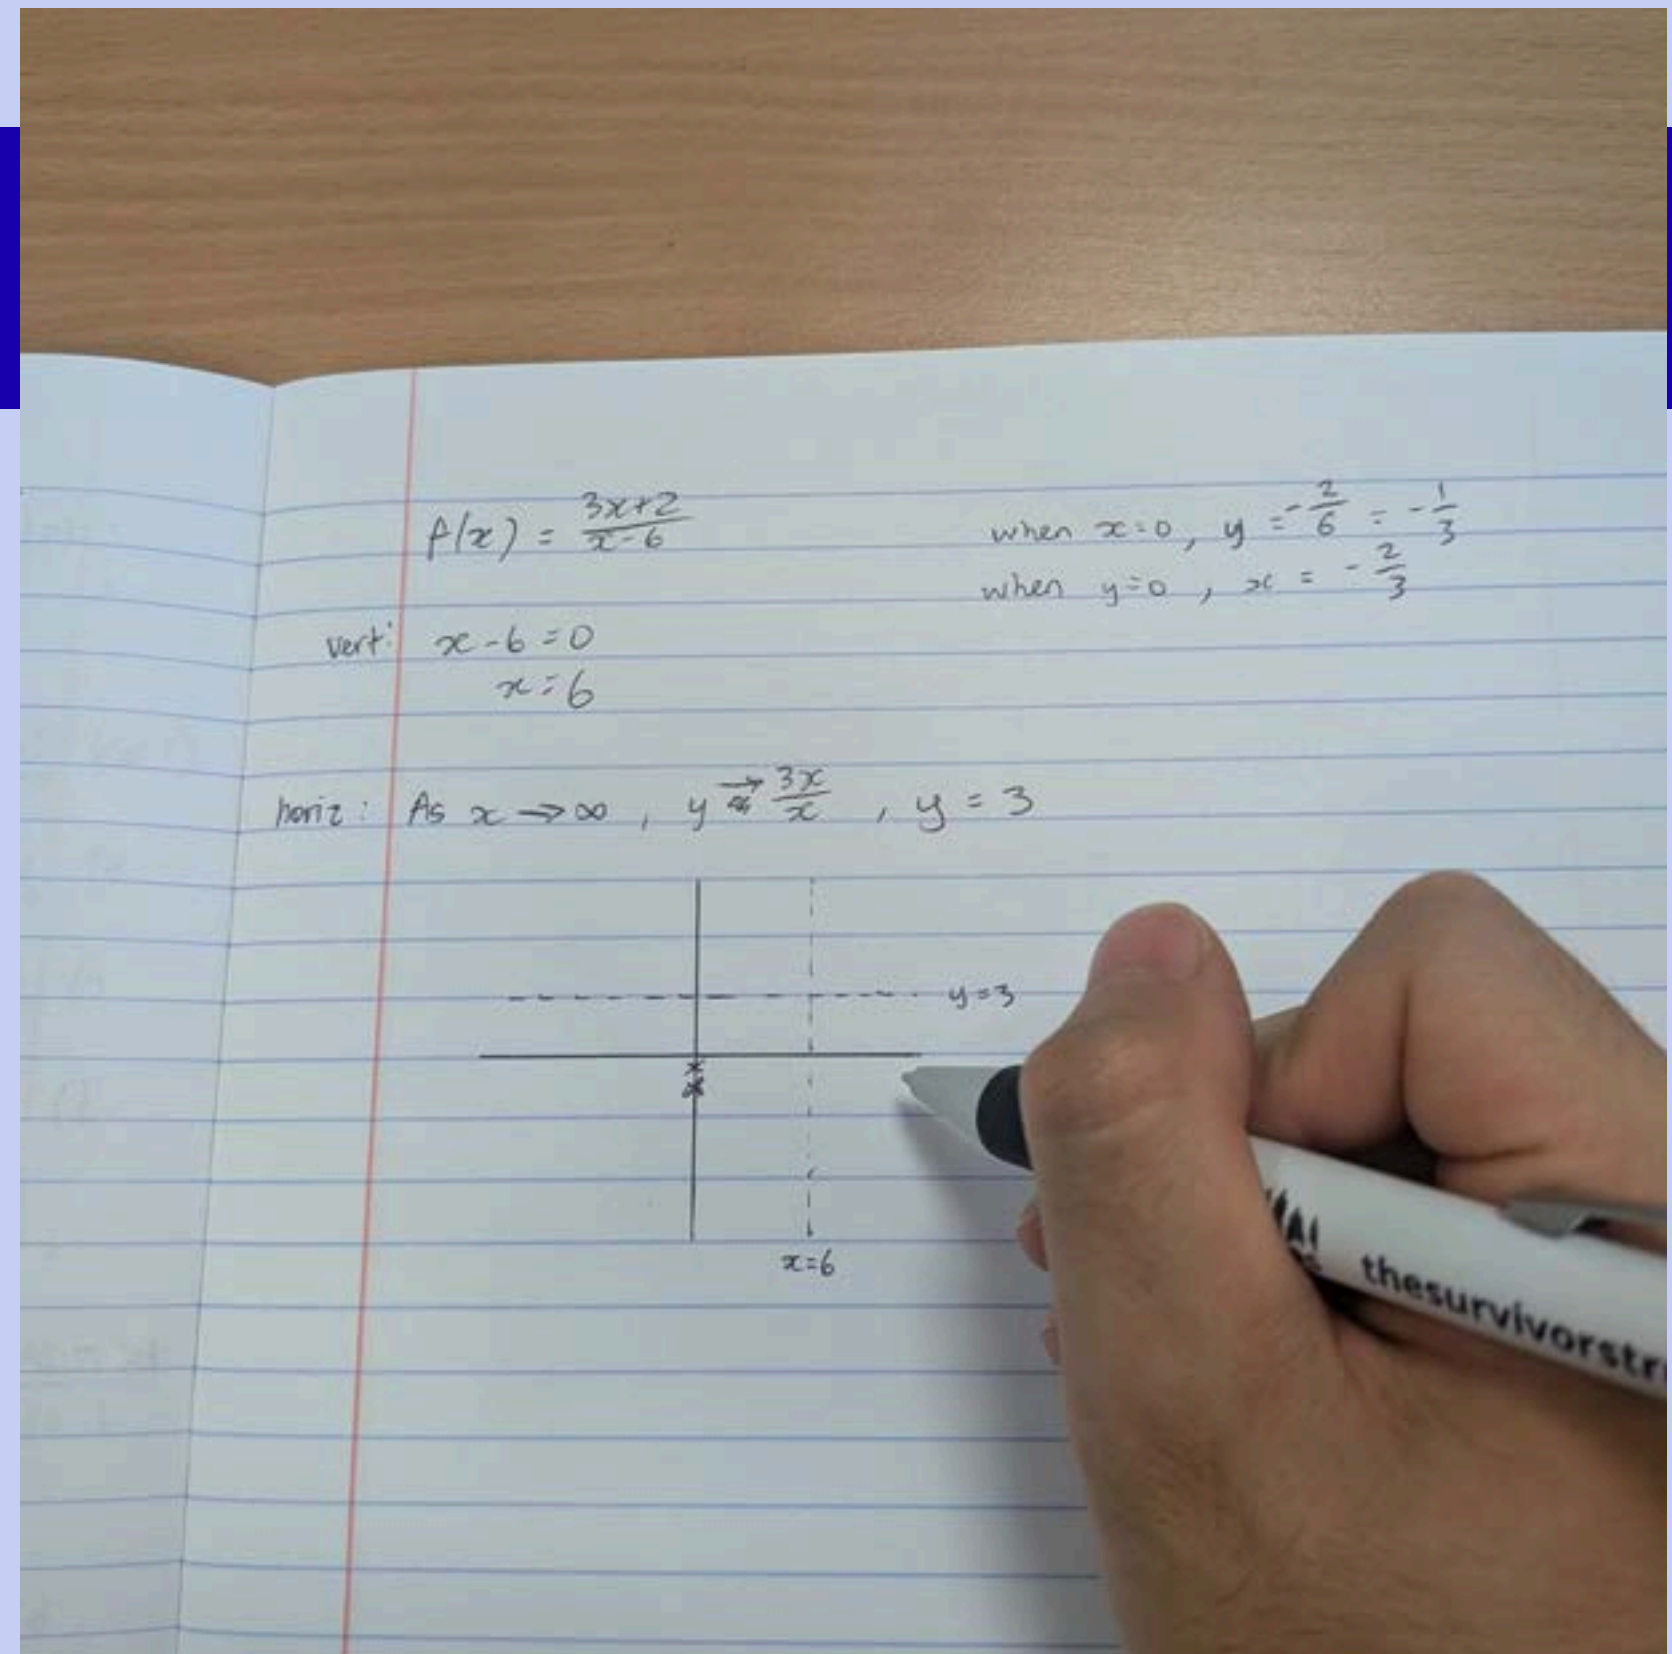 f(x) = 3x+2 / x-6
when x=0, y = -2/6 = -1/3
when y=0, x = -2/3
vert: x-6=0
x=6
horiz: As x → ∞, y → 3x/x, y = 3
y=3
x=6
thesurvivorstr